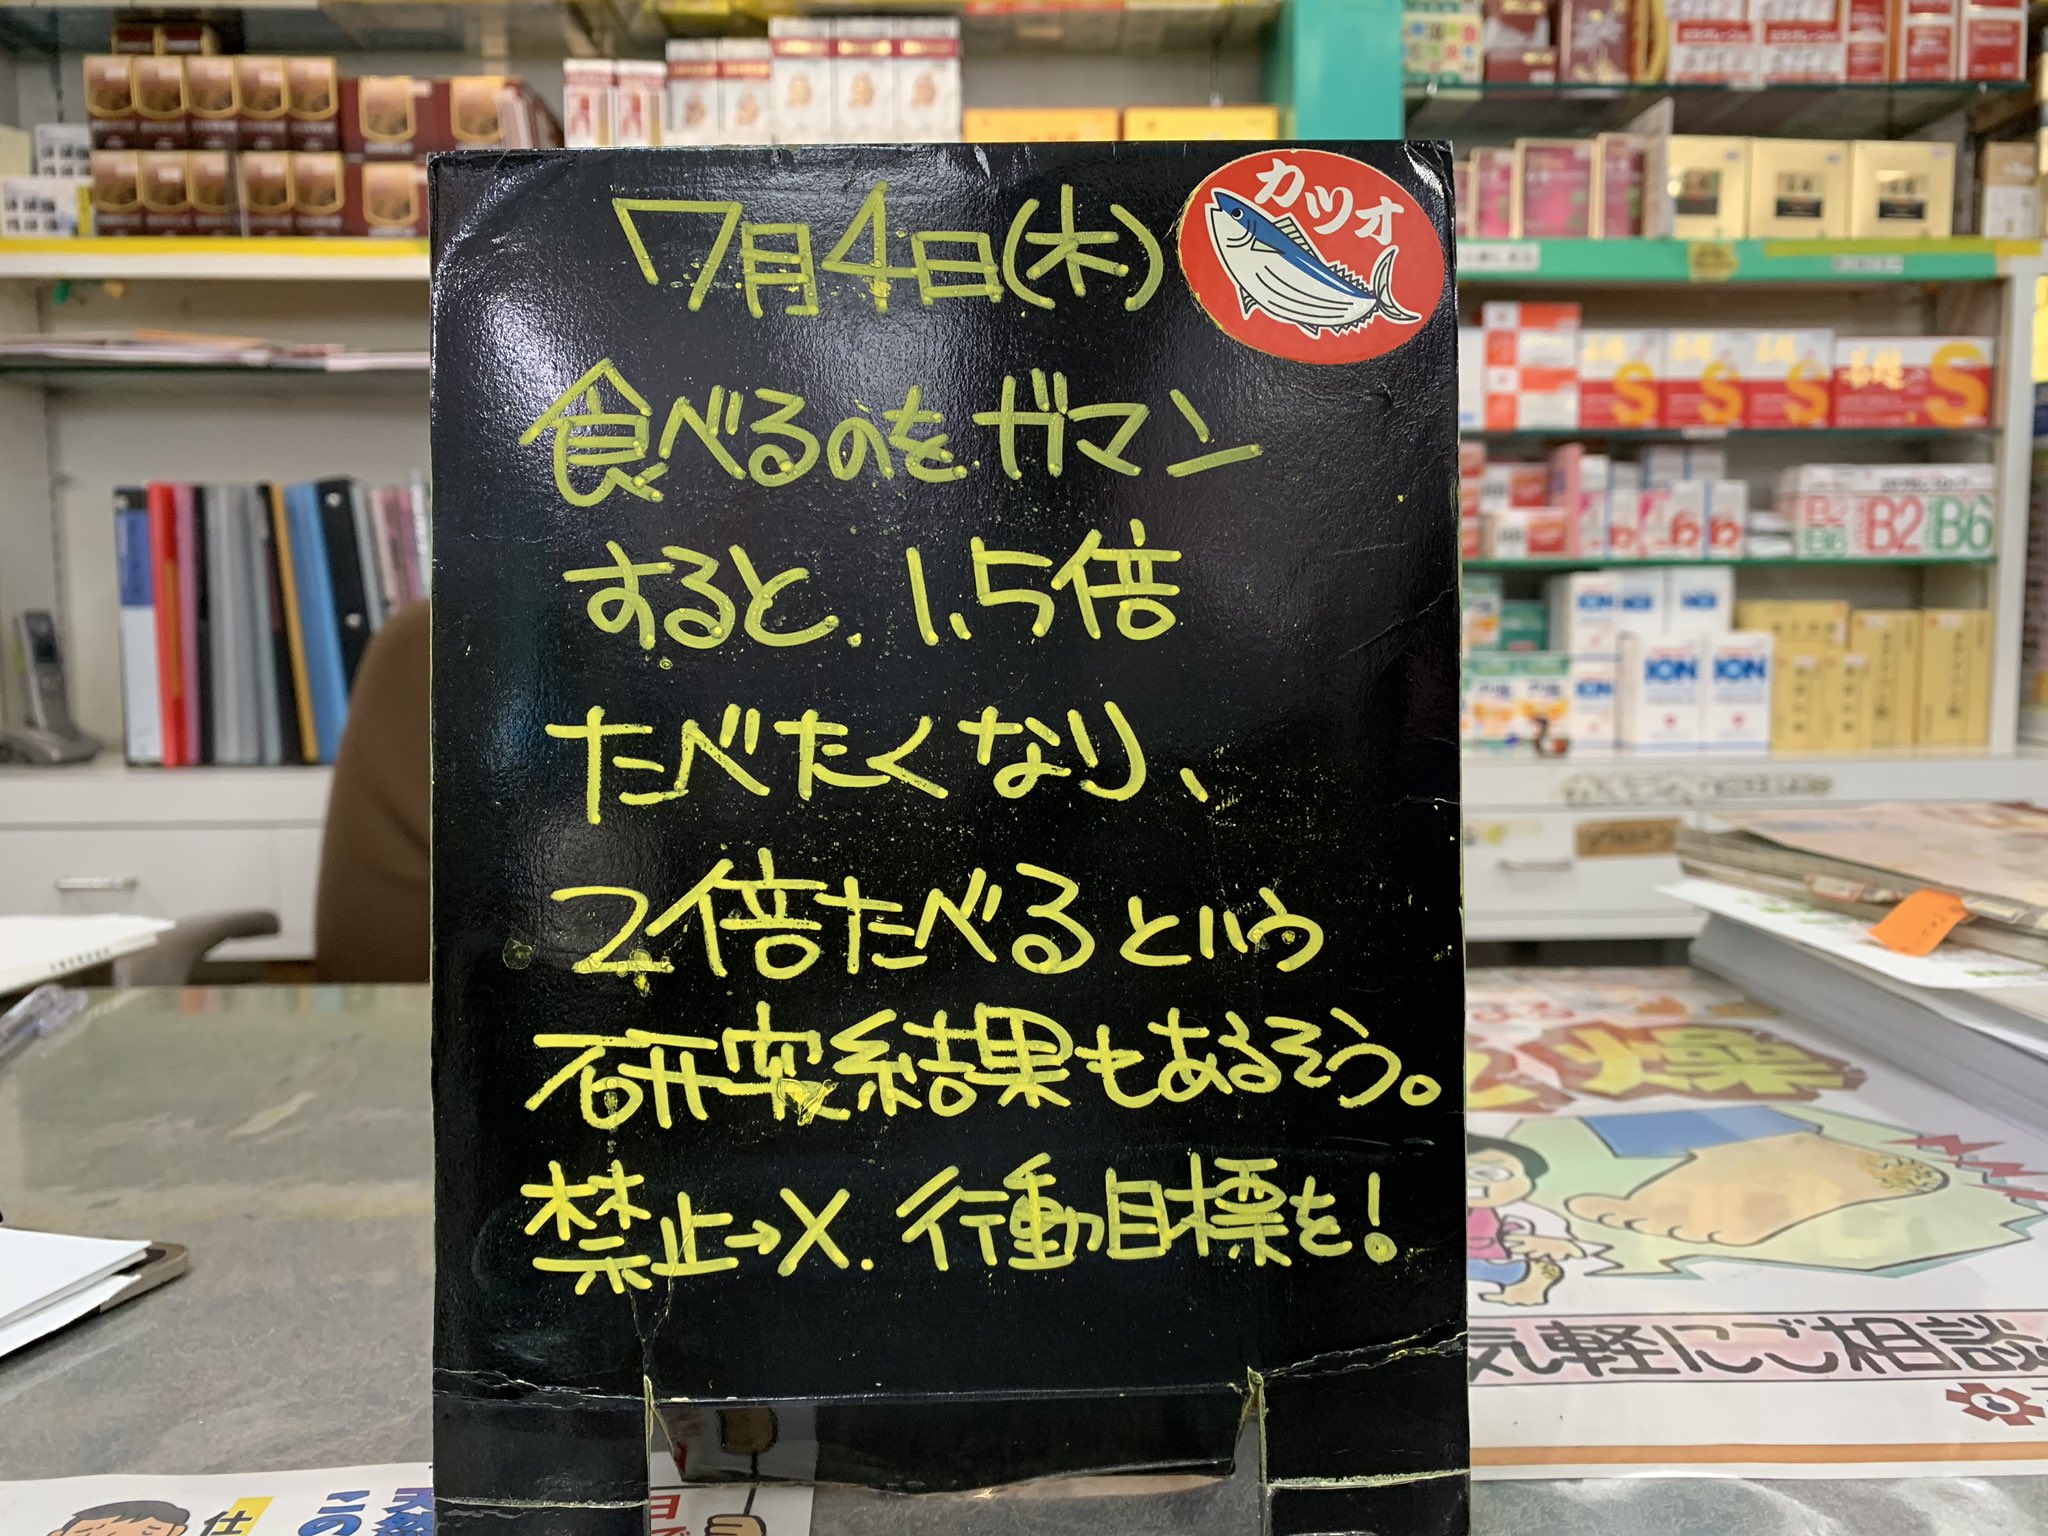 7月4日(木)
カツオ
食べるのをガマン
すると、1.5倍
たべたくなり、
2倍たべるという
研究結果もあるそう。
禁止→X. 行動目標を!
S
S
S
S
B2
B6
B2
B6
ION
ION
ION
ION
気軽にご相談
仕
この